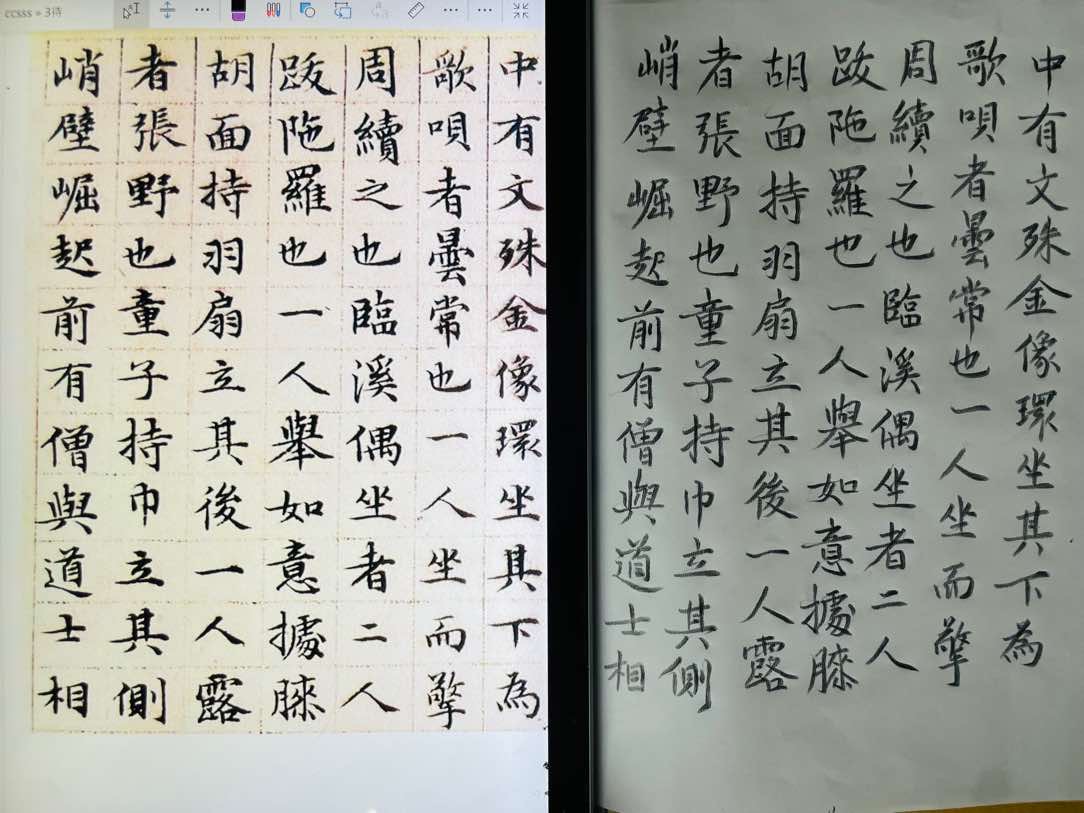 ccsss » 3待
中有文殊金像環坐其下為
歌唄者曇常也一人坐而擎
周續之也臨溪偶坐者二人
跋陁羅也一人舉如意據膝
胡面持羽扇立其後一人露
者張野也童子持巾立其側
峭壁崛起前有僧與道士相
中有文殊金像環坐其下為
歌唄者曇常也一人坐而擎
周續之也臨溪偶坐者二人
跋陁羅也一人舉如意據膝
胡面持羽扇立其後一人露
者張野也童子持巾立其側
峭壁崛起前有僧與道士相